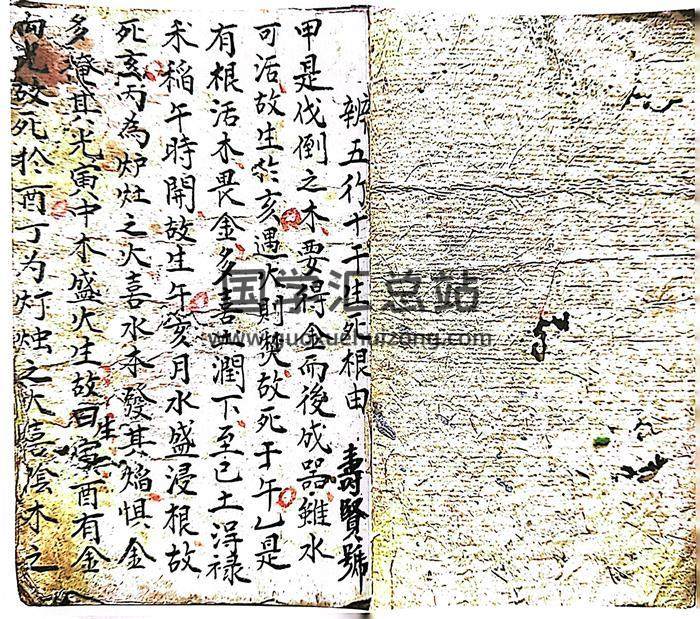 辨五行十干生死根由　壽賢號
甲是伐倒之木要得金而後成器雖水
可活故生於亥遇火則焚故死于午乙是
有根活木畏金多喜土潤下至巳土浮祿
禾稻午時開故生午亥月水盛浸根故
死亥丙為炉灶之火喜水木發其焰惧金
多掩其光寅中木盛火生故曰生寅酉有金
而光故死於酉丁为灯烛之火喜陰木之
国学汇总站
www.guoxuehuizong.com